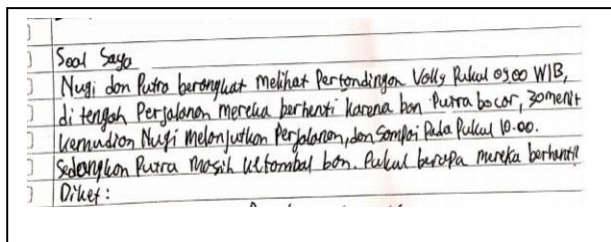 Soal Saya
Nugi dan Putra berangkat melihat Pertandingan Volly Pukul 09.00 WIB,
di tengah Perjalanan mereka berhenti karena ban Putra bocor, 30 menit
kemudian Nugi melanjutkan Perjalanan, dan Sampai Pada Pukul 10.00.
Sedangkan Putra masih ketambal ban. Pukul berapa mereka berhenti?
Diket: